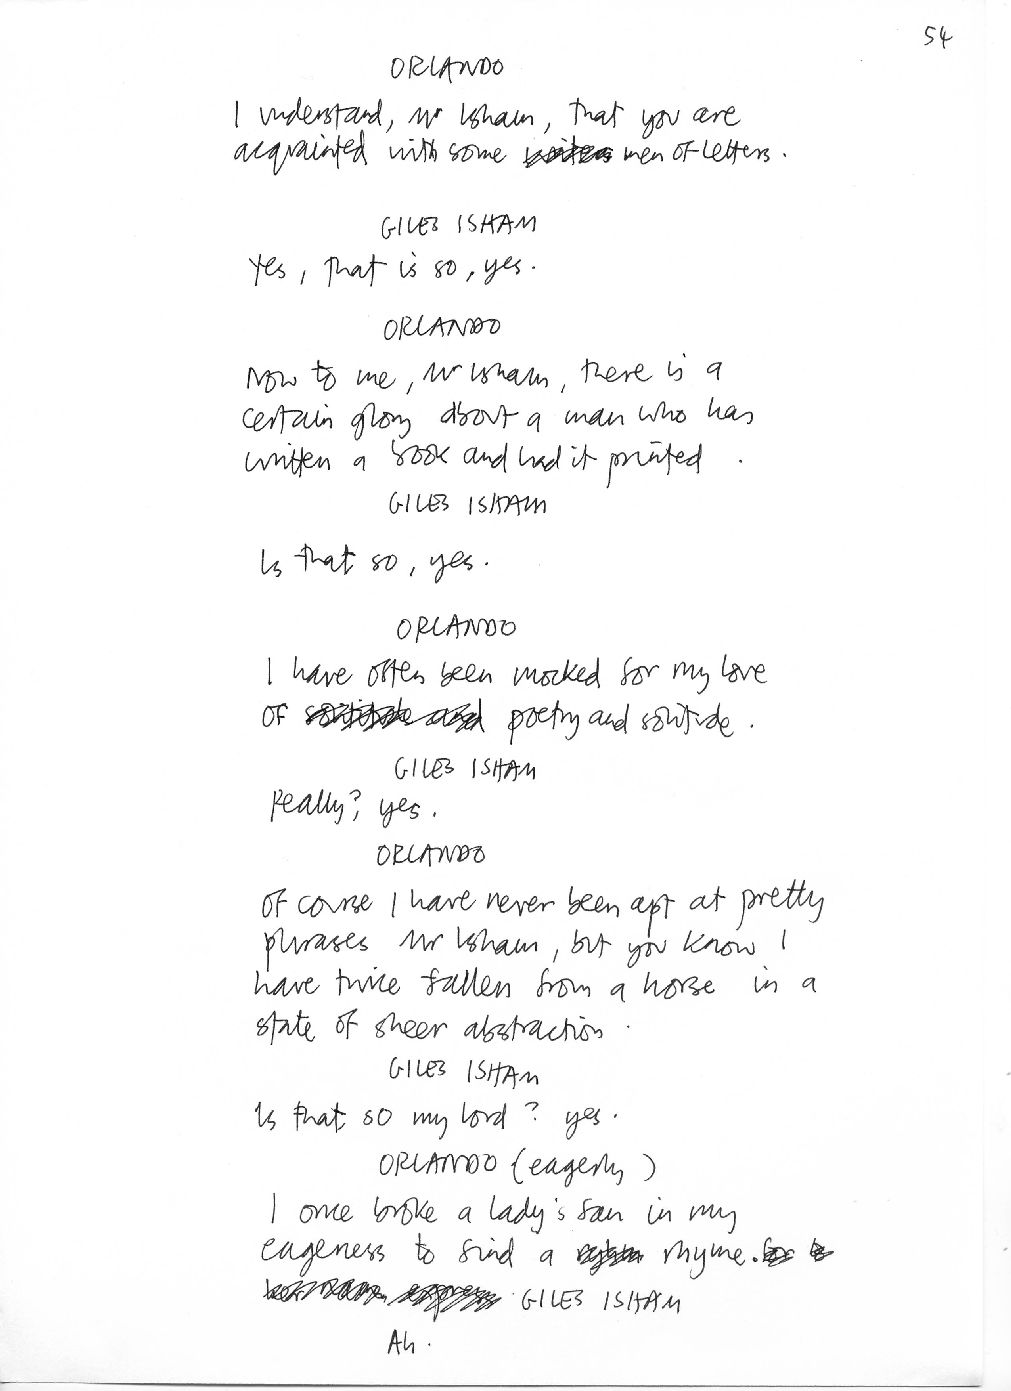 54
ORLANDO
I understand, Mr Isham, that you are
acquainted with some men of letters.
GILES ISHAM
Yes, that is so, yes.
ORLANDO
Now to me, Mr Isham, there is a
certain glory about a man who has
written a book and had it printed.
GILES ISHAM
Is that so, yes.
ORLANDO
I have often been mocked for my love
of poetry and solitude.
GILES ISHAM
Really?, yes.
ORLANDO
Of course I have never been apt at pretty
phrases Mr Isham, but you know I
have twice fallen from a horse in a
state of sheer abstraction.
GILES ISHAM
Is that so my lord? yes.
ORLANDO (eagerly)
I once broke a lady's fan in my
eageness to find a rhyme.
GILES ISHAM
Ah.